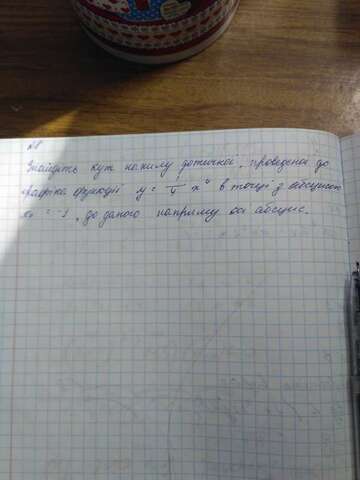 №8
Знайдіть кут нахилу дотичної, проведеної до
графіка функції y = x⁶ в точці з абсцисою
x₀ = -1, до даного напряму осі абсцис.